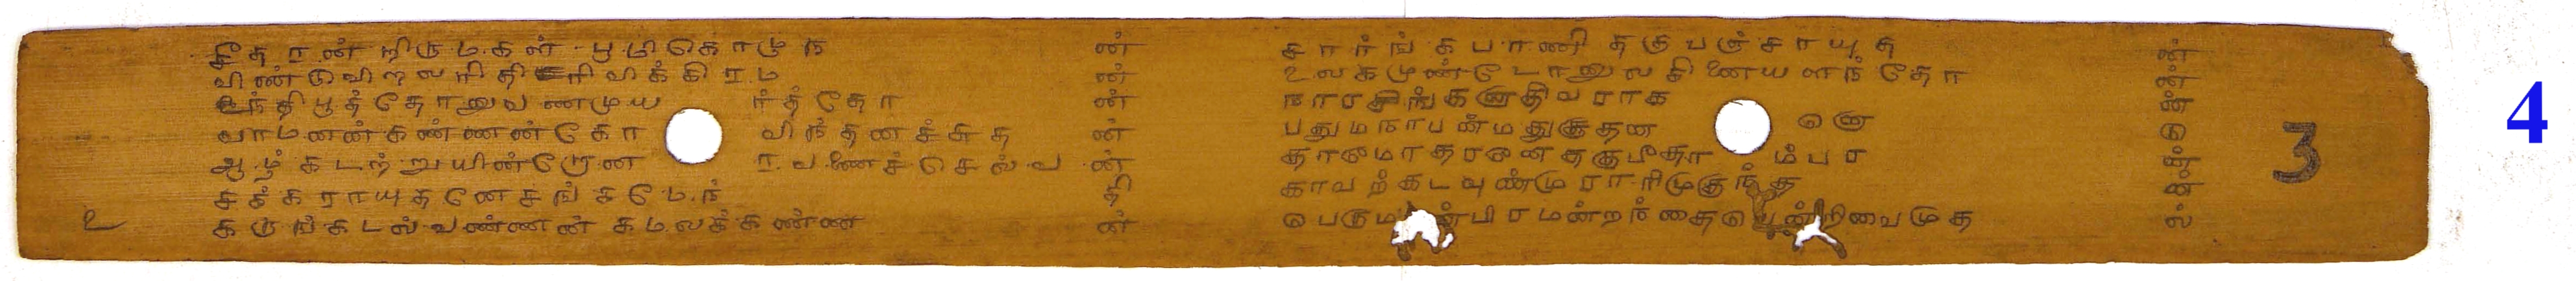 சீதரன் றிருமகள் பூமிகொழுந ன்
விண்டுவிறலரிதிரிவிக்கிரம ன்
உந்திபூத்தோனுவணமுய ர்த்தோ ன்
வாமனன்கண்ணன்கோ விந்தனச்சுத ன்
ஆழ்கடற்றுயின்றோன ரவணைச்செல்வ ன்
சக்கராயுதனேசங்கமேந் தி
௨ கருங்கடல்வண்ணன் கமலக்கண்ண ன்
சார்ங்கபாணி தருபஞ்சாயுத ன்
உலகமுண்டோனுலகினையளந்தோ ன்
நாரசிங்கனாதிவராக ன்
பதுமநாபன்மதுசூதன னெ டு
தாமோதரனேதகுபீதா ம்பர ன்
காவற்கடவுண்முராரிமுகுந்த ன்
பெரும ன்பிரமன்றந்தை றிவைமுத ல்
3
4